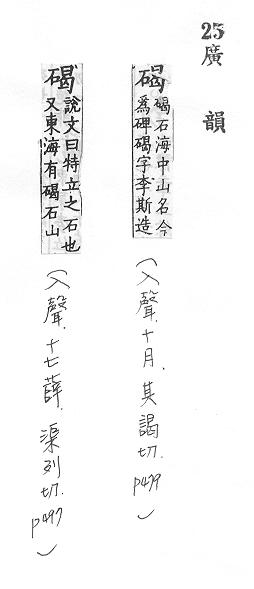 25廣韻
碣碣石海中山名今
爲碑碣字李斯造
(入聲.十月.其謁切.P479)
碣說文曰特立之石也
又東海有碣石山
(入聲.十七薛.渠列切.P497)